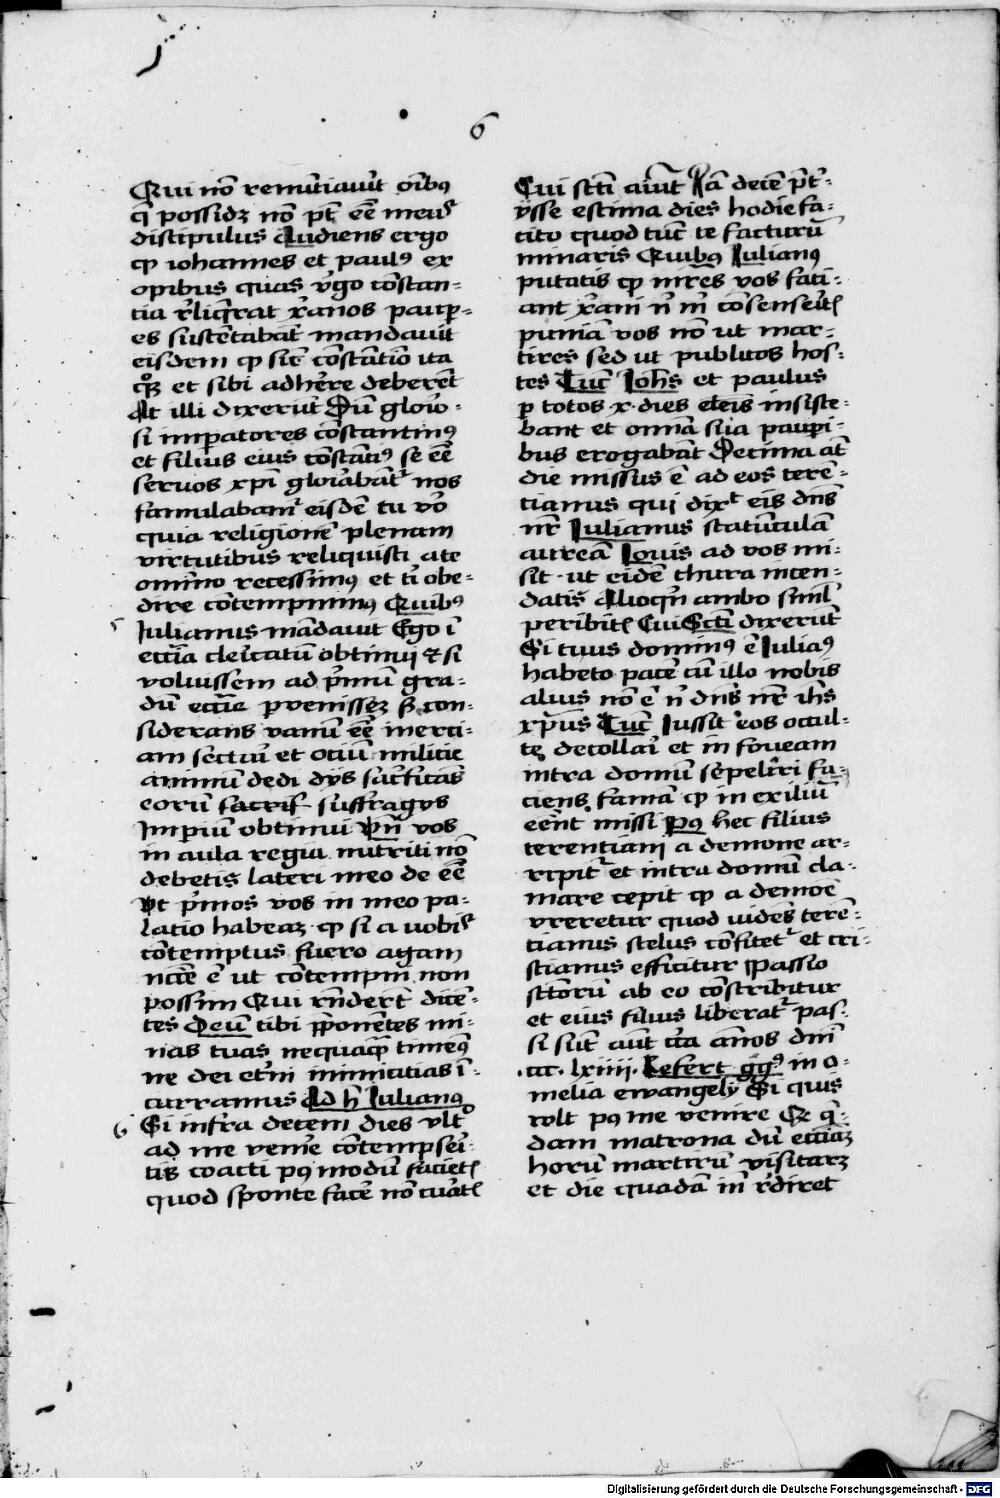 6
Qui nō renūtiauit oībꝰ
q̄ possidꝫ nō pt̄ eē meꝰ
discipulus Audiens ergo
ꝙ iohannes et paulꝰ ex
opibus quas v̓go cōstan-
tia r̓liq̄rat xp̓anos paup̱-
es sustētabāt mandauit
eisdem ꝙ sic̄ cōstātio ita
qͦꝫ et sibi adhe̓re deberēt
At illi dixerūt Dū glo̓io-
si imp̱atores cōstantinꝰ
et filius eius cōstātiꝰ se eē
seruos xp̄i glo̓iabāt᷑ nos
famulabam᷑ eisdē tu v̓o
quia religionē plenam
virtutibus reliquisti a te
omīno recessimꝰ et t̓i obe-
dire cōtempnimꝰ Quibꝰ
Iulianus mādauit Ego ī
ecc̄ia cle̓icatū obtinui et si
voluissem ad p̓mū gra-
dū ecc̄ie p̱uenissē sꝫ con-
siderans vanū eē inerci-
am sectari et ociū milicie
animū dedi dijs sac̓ficās
eorū sacrif- suffragijs
Imp̱iū obtinui Vn̄ vos
in aula regia nutriti nō
debetis lateri meo de eē
Vt p̓mos vos in meo pa-
latio habeaꝫ ꝙ si a uobis
cōtemptus fuero agam
necē ē ut cōtempni non
possim Qui rn̄derūt dicē-
tes Deum tibi p̄ponētes mi-
nas tuas nequaq̄ timeꝰ
ne dei et̓ni inimicitias ī-
curramus Ad h̄ Iulianꝰ
Si infra decem dies vltͦ
ad me veni̓e cōtempse̓i-
tis coacti pꝰmodū facietꝭ
quod sponte face̓ nō cuātꝭ
Cui sc̄ti aiūt Iā decē p̓t̓-
ijsse estima dies hodie fa-
cito quod tūc te facturū
minaris Quibꝰ Iulianꝰ
putatis ꝙ m̓res vos faci-
ant xp̓ani n̄ m̄ cōsense̓itꝭ
puniā vos nō ut mar-
tires sed ut publicos hos-
tes Tūc Ioh̄s et paulus
ꝑ totos x dies eleis insiste-
bant et omnā sua paup̱i-
bus erogabāt Decima at̄
die missus ē ad eos terē-
tianus qui dixᵗ eis dn̄s
nr̄ Iulianus statūculā
aureā Iouis ad vos mi-
sit ut eidē thura incen-
datis Alioqn̄ ambo siml̄
peribitꝭ Cui Scti dixerūt
Si tuus dominꝰ ē Iuliaꝰ
habeto pacē cū illo nobis
alius nō ē n̄ dn̄s nr̄ ih̄s
xp̓us Tūc Iussit eos occul-
te decollari et in foueam
intra domū sepeliri fa-
ciens famā ꝙ in exiliū
eēnt missi Pꝰ hec filius
terentiani a demone ar-
ripit᷑ et intra domū cla-
mare cepit ꝙ a demoē
vreretur quod uidēs terē-
tianus scelus cōfitet᷑ et cri-
stianus efficitur Passio
sctōrū ab eo cōscribitur
et eius filius liberat᷑ pas-
si sūt aūt c̓ca ānos dn̄i
ccc lxiiii Refert ggꝰ in o-
melia ewangelij Si quis
volt pꝰ me venire Qꝫ q̄-
dam matrona dū ecc̄iaꝫ
horū martirū visitaꝫ
et die quadā in̄ r̓diret
Digitalisierung gefördert durch die Deutsche Forschungsgemeinschaft · DFG